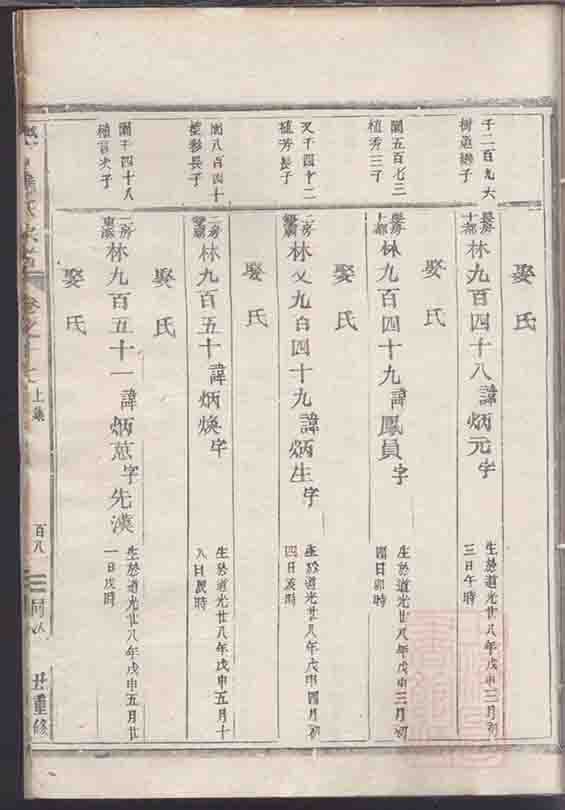 子二百九六
林九百四十八諱炳元字
生於道光廿八年戊申三月初
三日午時
娶氏
閏五百七三
植秀三子
林九百四十九諱鳳員字
生於道光廿八年戊申三月初
四日卯時
娶氏
又千四十二
植芳長子
林又九百四十九諱炳生字
生於道光廿八年戊申四月初
四日辰時
娶氏
閏八百四十
長子
林九百五十諱炳煥字
生於道光廿八年戊申五月十
八日辰時
娶氏
閏千四十八
次子
林九百五十一諱炳蒽字先漢
生於道光廿八年戊申五月廿
一日戌時
娶氏
上集
百八
丑重修